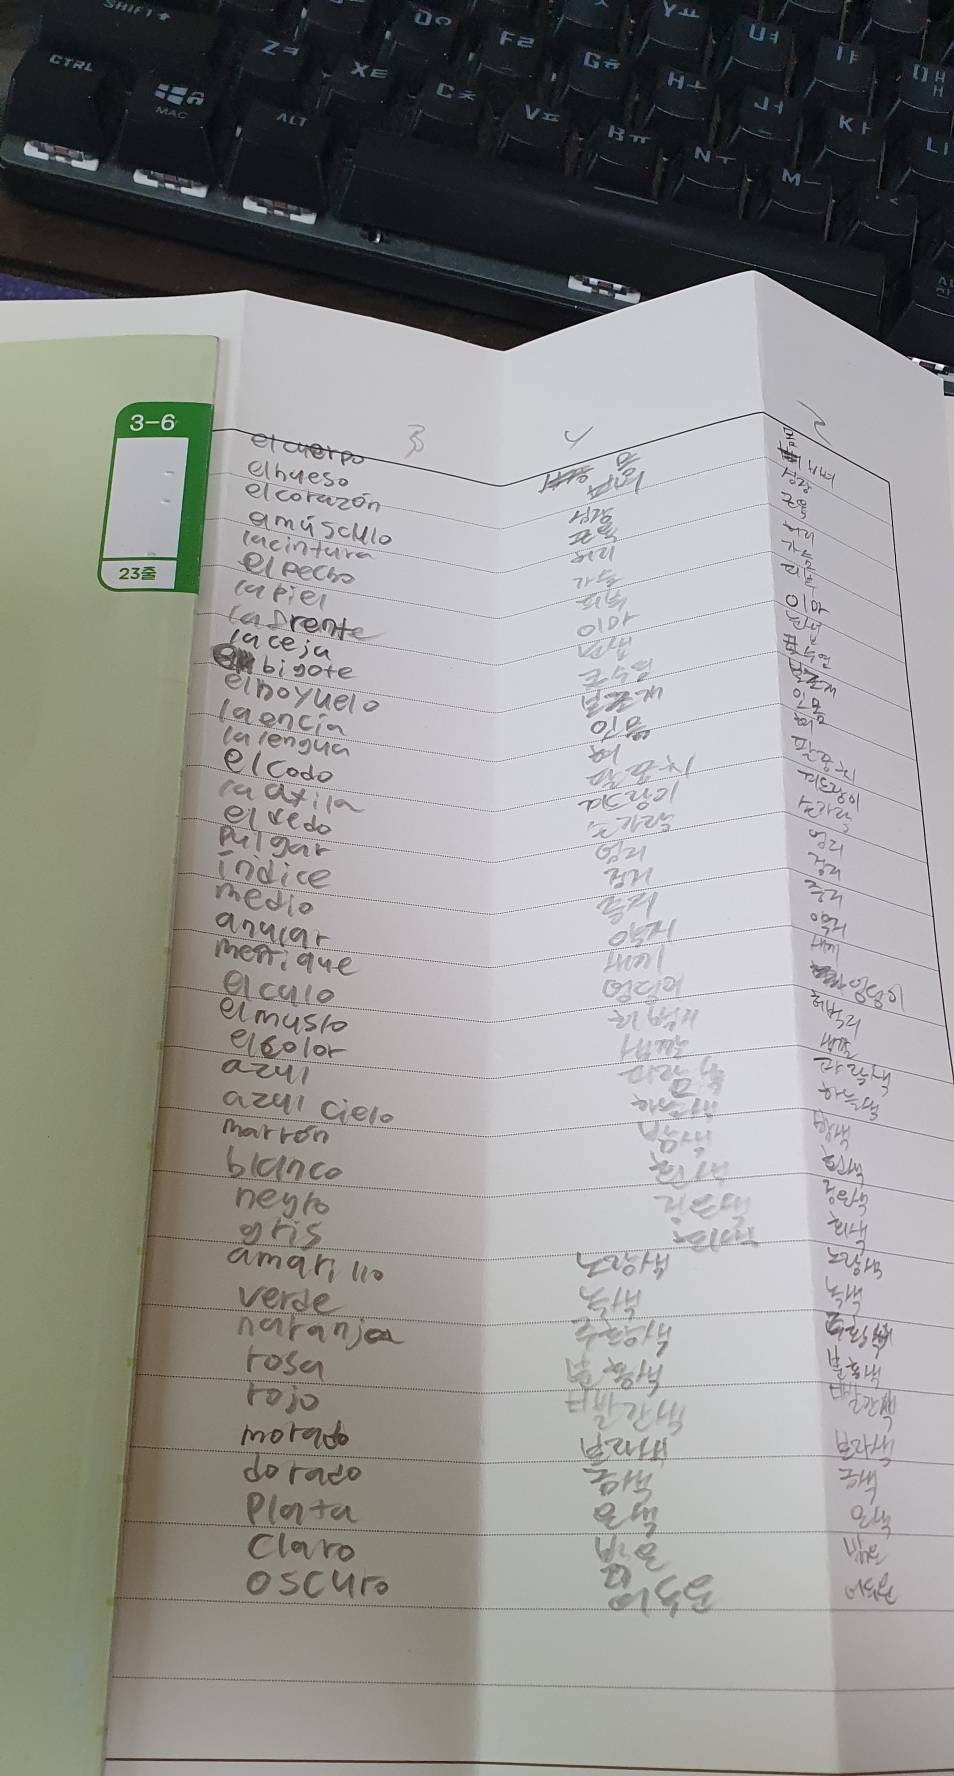 SHIFT
CTRL
MAC
ALT
Zㅋ
Xㅌ
Cㅊ
Vㅍ
Dㅇ
Fㄹ
Gㅎ
Bㅠ
Yㅛ
Uㅕ
Hㅗ
Nㅜ
Jㅓ
Mㅡ
Iㅑ
Kㅏ
3-6
23줄
3 4 2
el cuerpo 몸 몸
el hueso 뼈
el corazón 심장 심장
el músculo 근육 근육
la cintura 허리 허리
el pecho 가슴 가슴
la piel 피부 피부
la frente 이마 이마
la ceja 눈썹 눈썹
bigote 콧수염 콧수염
el hoyuelo 보조개 보조개
la encía 잇몸 잇몸
la lengua 혀 혀
el codo 팔꿈치 팔꿈치
la axila 겨드랑이 겨드랑이
el dedo 손가락 손가락
pulgar 엄지 엄지
índice 검지 검지
medio 중지 중지
anular 약지 약지
meñique 새끼 새끼
el culo 엉덩이 엉덩이
el muslo 허벅지 허벅지
el color 색깔 색깔
azul 파랑색 파랑색
azul cielo 하늘색 하늘색
marrón 밤색 밤색
blanco 흰색 흰색
negro 검은색 검은색
gris 회색 회색
amarillo 노랑색 노랑색
verde 녹색 녹색
naranja 주황색 주황색
rosa 분홍색 분홍색
rojo 빨간색 빨간색
morado 보라색 보라색
dorado 금색 금색
plata 은색 은색
claro 밝은 밝은
oscuro 어두운 어두운